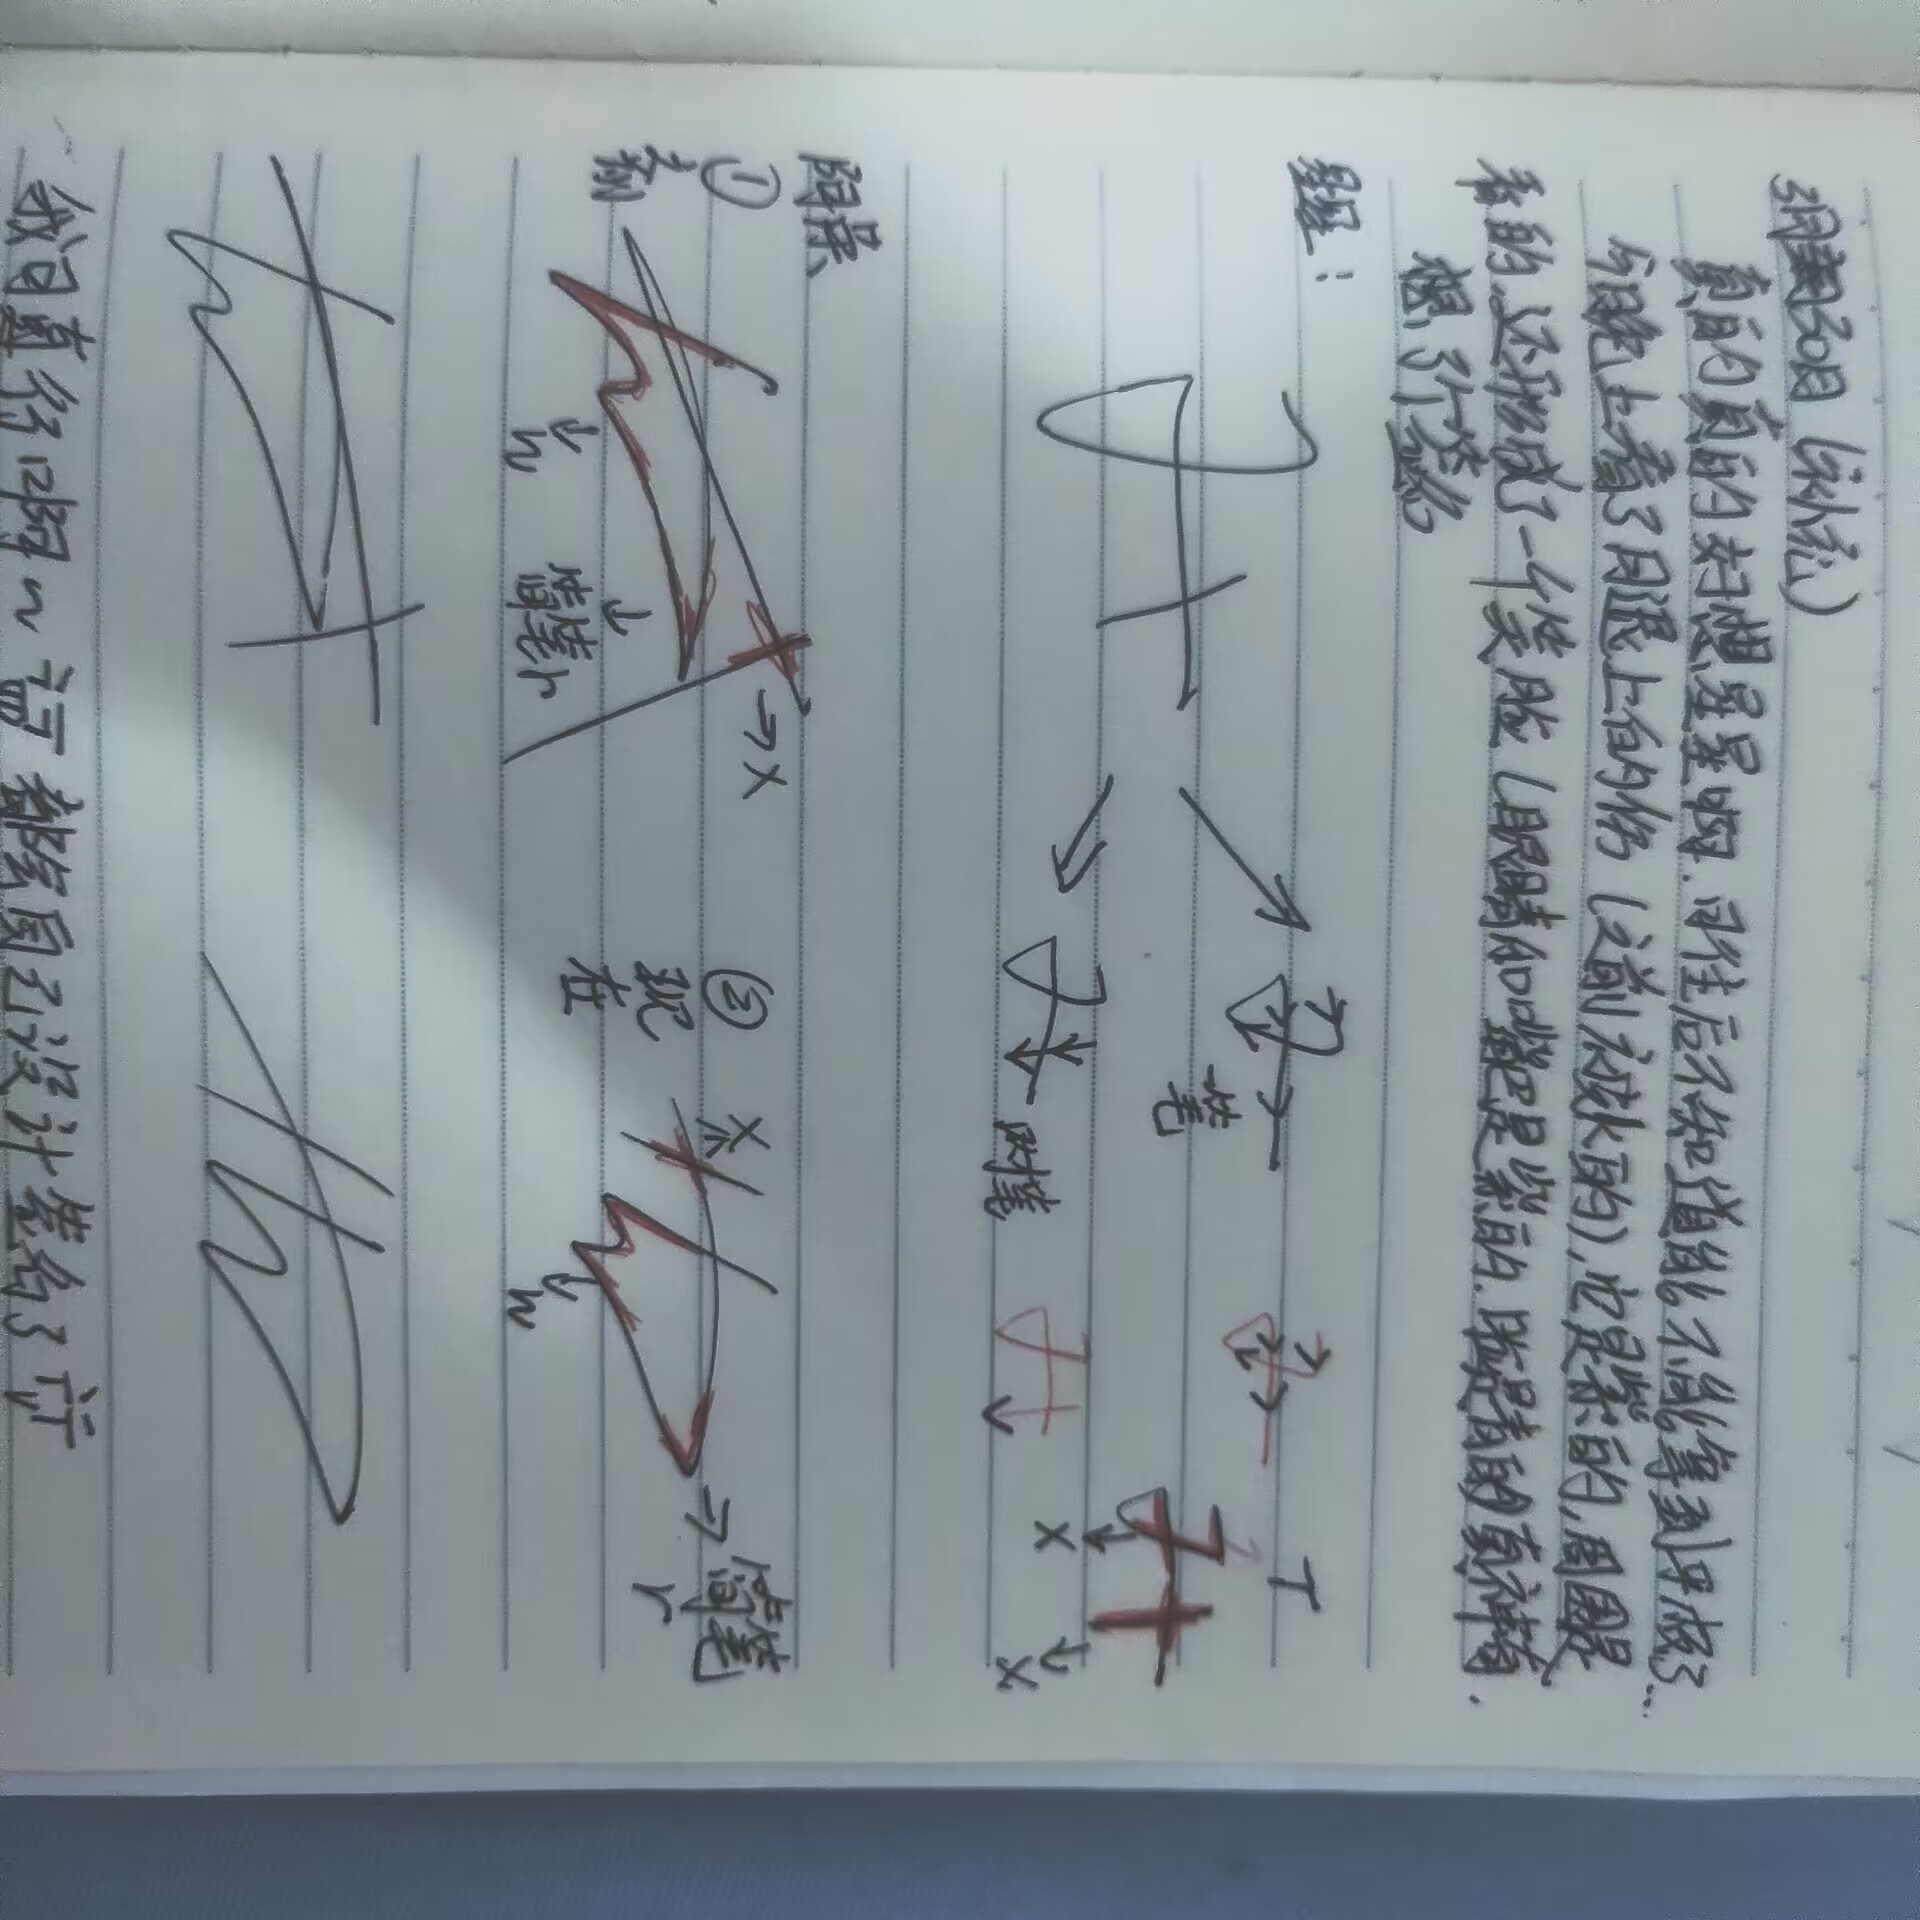 3月30日(补充)
真的真的好想星星啊.可往后不知道能不能拿到平板了...
今日晚上看了月退上的伤(之前被火的),它是紫的,周围是
青的.还形成了一个笑脸(眼睛和嘴巴是紫的.脸是青的真神奇.
想了个签名
星星:
一笔
T
X
X
两笔
阿杲
①之前
X
n
简笔r
②现在
X
n
简笔r
我可真行啊~都会自己设计签名了